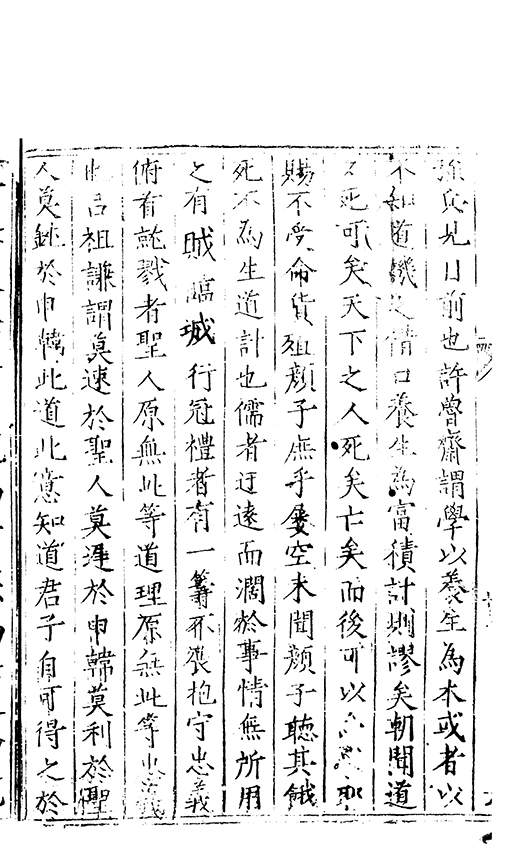 強兵見目前也許魯齋謂學以養生為本或者以
不知道機之借口養生為富積計則謬矣朝聞道
夕死可矣天下之人死矣亡矣而後可以
賜不受命貨殖顏子庶乎屢空未聞顏子聽其餓
死不為生道計也儒者迂遠而濶於事情無所用
之有賊臨城行冠禮者有一籌不展抱守忠義
俯首就戮者聖人原無此等道理原無此等忠義
呂祖謙謂莫速於聖人莫遲於申韓莫利於聖
人莫鈍於申韓此道此意知道君子自可得之於